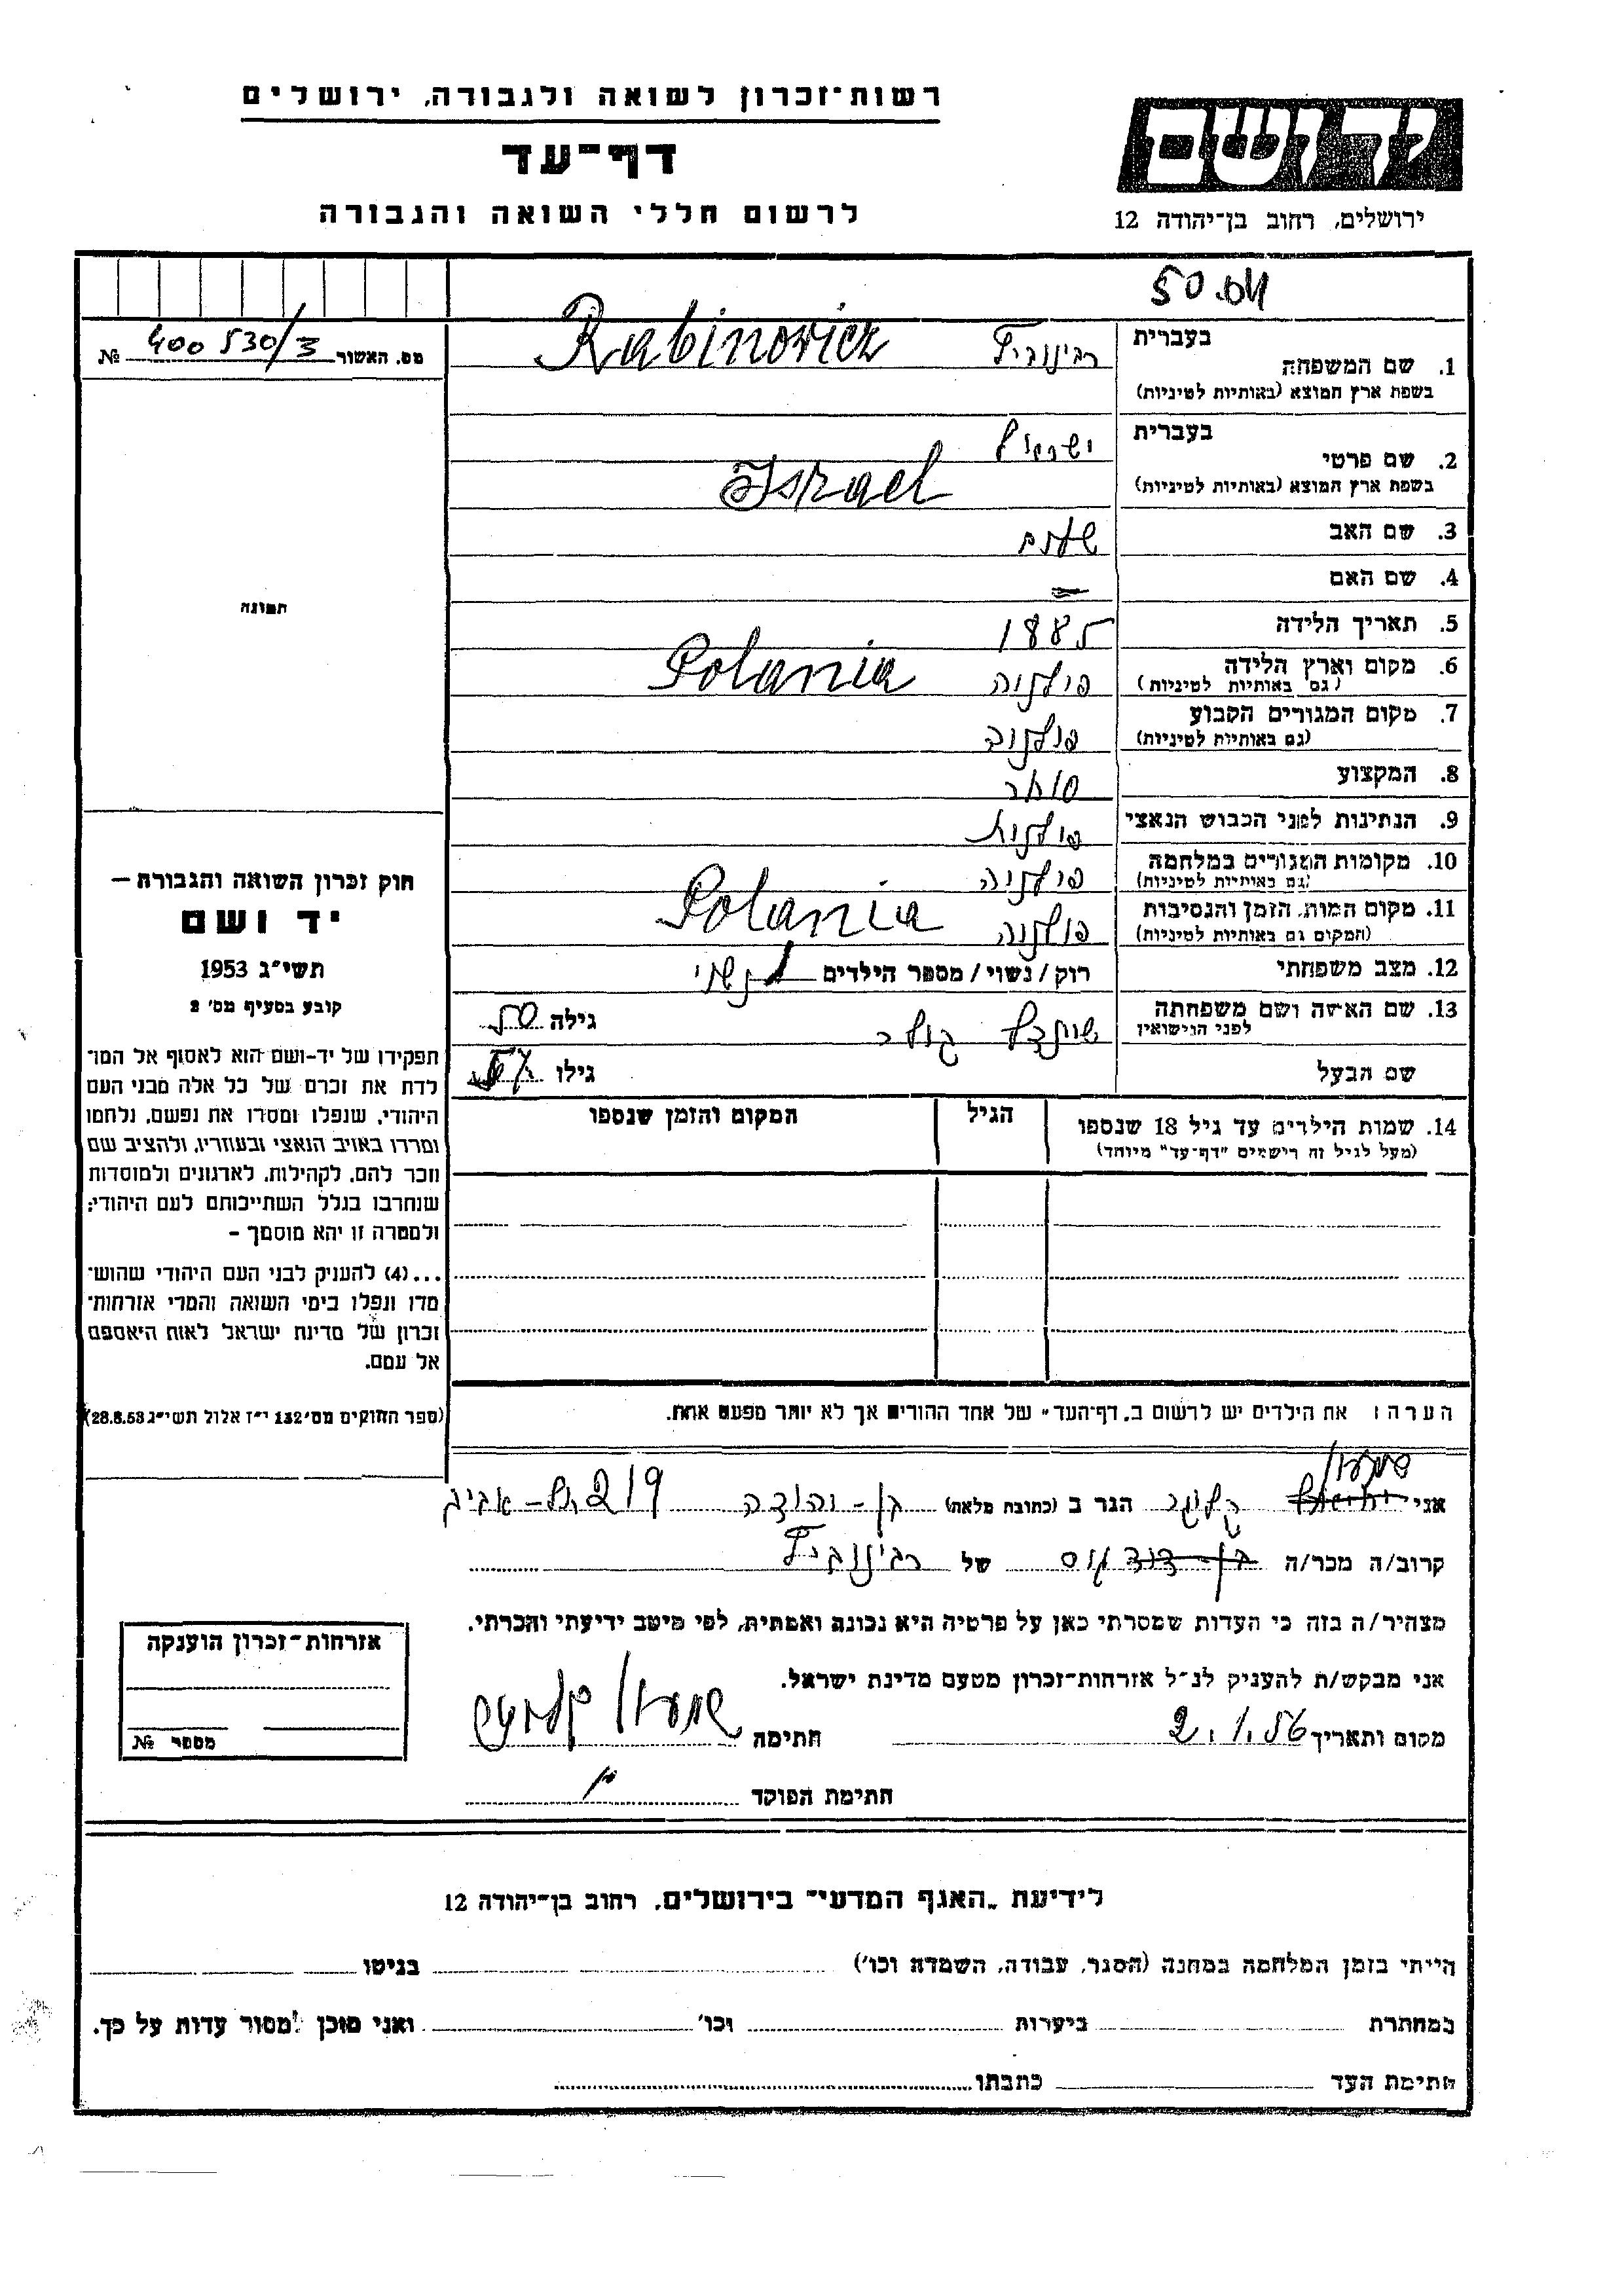 רשות־זכרון לשואה ולגבורה, ירושלים
דף־עד
לרשום חללי השואה והגבורה
יד ושם
ירושלים, רחוב בן־יהודה 12
50
מס. האשור 400530/3 №
תמונה
1. שם המשפחה בעברית רבינוביץ Rabinovicz
בשפת ארץ המוצא (באותיות לטיניות)
2. שם פרטי בעברית ישראל
בשפת ארץ המוצא (באותיות לטיניות) Israel
3. שם האב שלום
4. שם האם —
5. תאריך הלידה 1885
6. מקום וארץ הלידה פולניה Polania
(גם באותיות לטיניות)
7. מקום המגורים הקבוע פולניה
(גם באותיות לטיניות)
8. המקצוע סוחר
9. הנתינות לפני הכבוש הנאצי פולנית
10. מקומות המגורים במלחמה פולניה
(גם באותיות לטיניות)
11. מקום המות, הזמן והנסיבות פולניה Polania
(המקום גם באותיות לטיניות)
12. מצב משפחתי רוק/נשוי/מספר הילדים נשוי
13. שם האישה ושם משפחתה לפני הנישואין גילה 50
שם הבעל גילו
14. שמות הילדים עד גיל 18 שנספו הגיל המקום והזמן שנספו
(מעל לגיל זה רישמים "דף־עד" מיוחד)
הערה: את הילדים יש לרשום ב„דף־העד" של אחד ההורים אך לא יותר מפעם אחת.
חוק זכרון השואה והגבורה —
יד ושם
תשי"ג 1953
קובע בסעיף מס' 2
תפקידו של יד-ושם הוא לאסוף אל המו־
לדת את זכרם של כל אלה מבני העם
היהודי, שנפלו ומסרו את נפשם, נלחמו
ומרדו באויב הנאצי ובעוזריו, ולהציב שם
וזכר להם, לקהילות, לארגונים ולמוסדות
שנחרבו בגלל השתייכותם לעם היהודי;
ולמטרה זו יהא מוסמך —
...(4) להעניק לבני העם היהודי שהוש־
מדו ונפלו בימי השואה והמרי אזרחות־
זכרון של מדינת ישראל לאות היאספם
אל עמם.
(ספר החוקים מס' 132 י"ז אלול תשי"ג 28.8.53)
שמעון
אני הגר ב (כתובת מלאה) בן-יהודה 219 תל-אביב
קרוב/ה מכר/ה של רבינוביץ
מצהיר/ה בזה כי העדות שמסרתי כאן על פרטיה היא נכונה ואמתית, לפי מיטב ידיעתי והכרתי.
אני מבקש/ת להעניק לנ"ל אזרחות־זכרון מטעם מדינת ישראל.
מקום ותאריך 2.1.56 חתימה שמעון
חתימת הפוקד
אזרחות־זכרון הוענקה
מספר №
לידיעת „האגף המדעי" בירושלים, רחוב בן־יהודה 12
הייתי בזמן המלחמה במחנה (הסגר, עבודה, השמדה וכו') בגיטו
במחתרת ביערות וכו' ואני מוכן למסור עדות על כך.
חתימת העד כתבתו